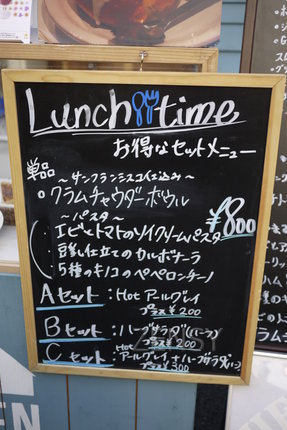 Lunch time
お得なセットメニュー
単品
〜サンフランシスコ仕込み〜
クラムチャウダーボウル
〜パスタ〜
¥800
エビとトマトのソイクリームパスタ
豆乳仕立てのカルボナーラ
5種のキノコのペペロンチーノ
Aセット：Hot アールグレイ
プラス¥200
Bセット：ハーブサラダ(ハーフ)
プラス¥200
Cセット：Hot アールグレイ+ハーブサラダ(ハーフ)
プラス¥300
EN